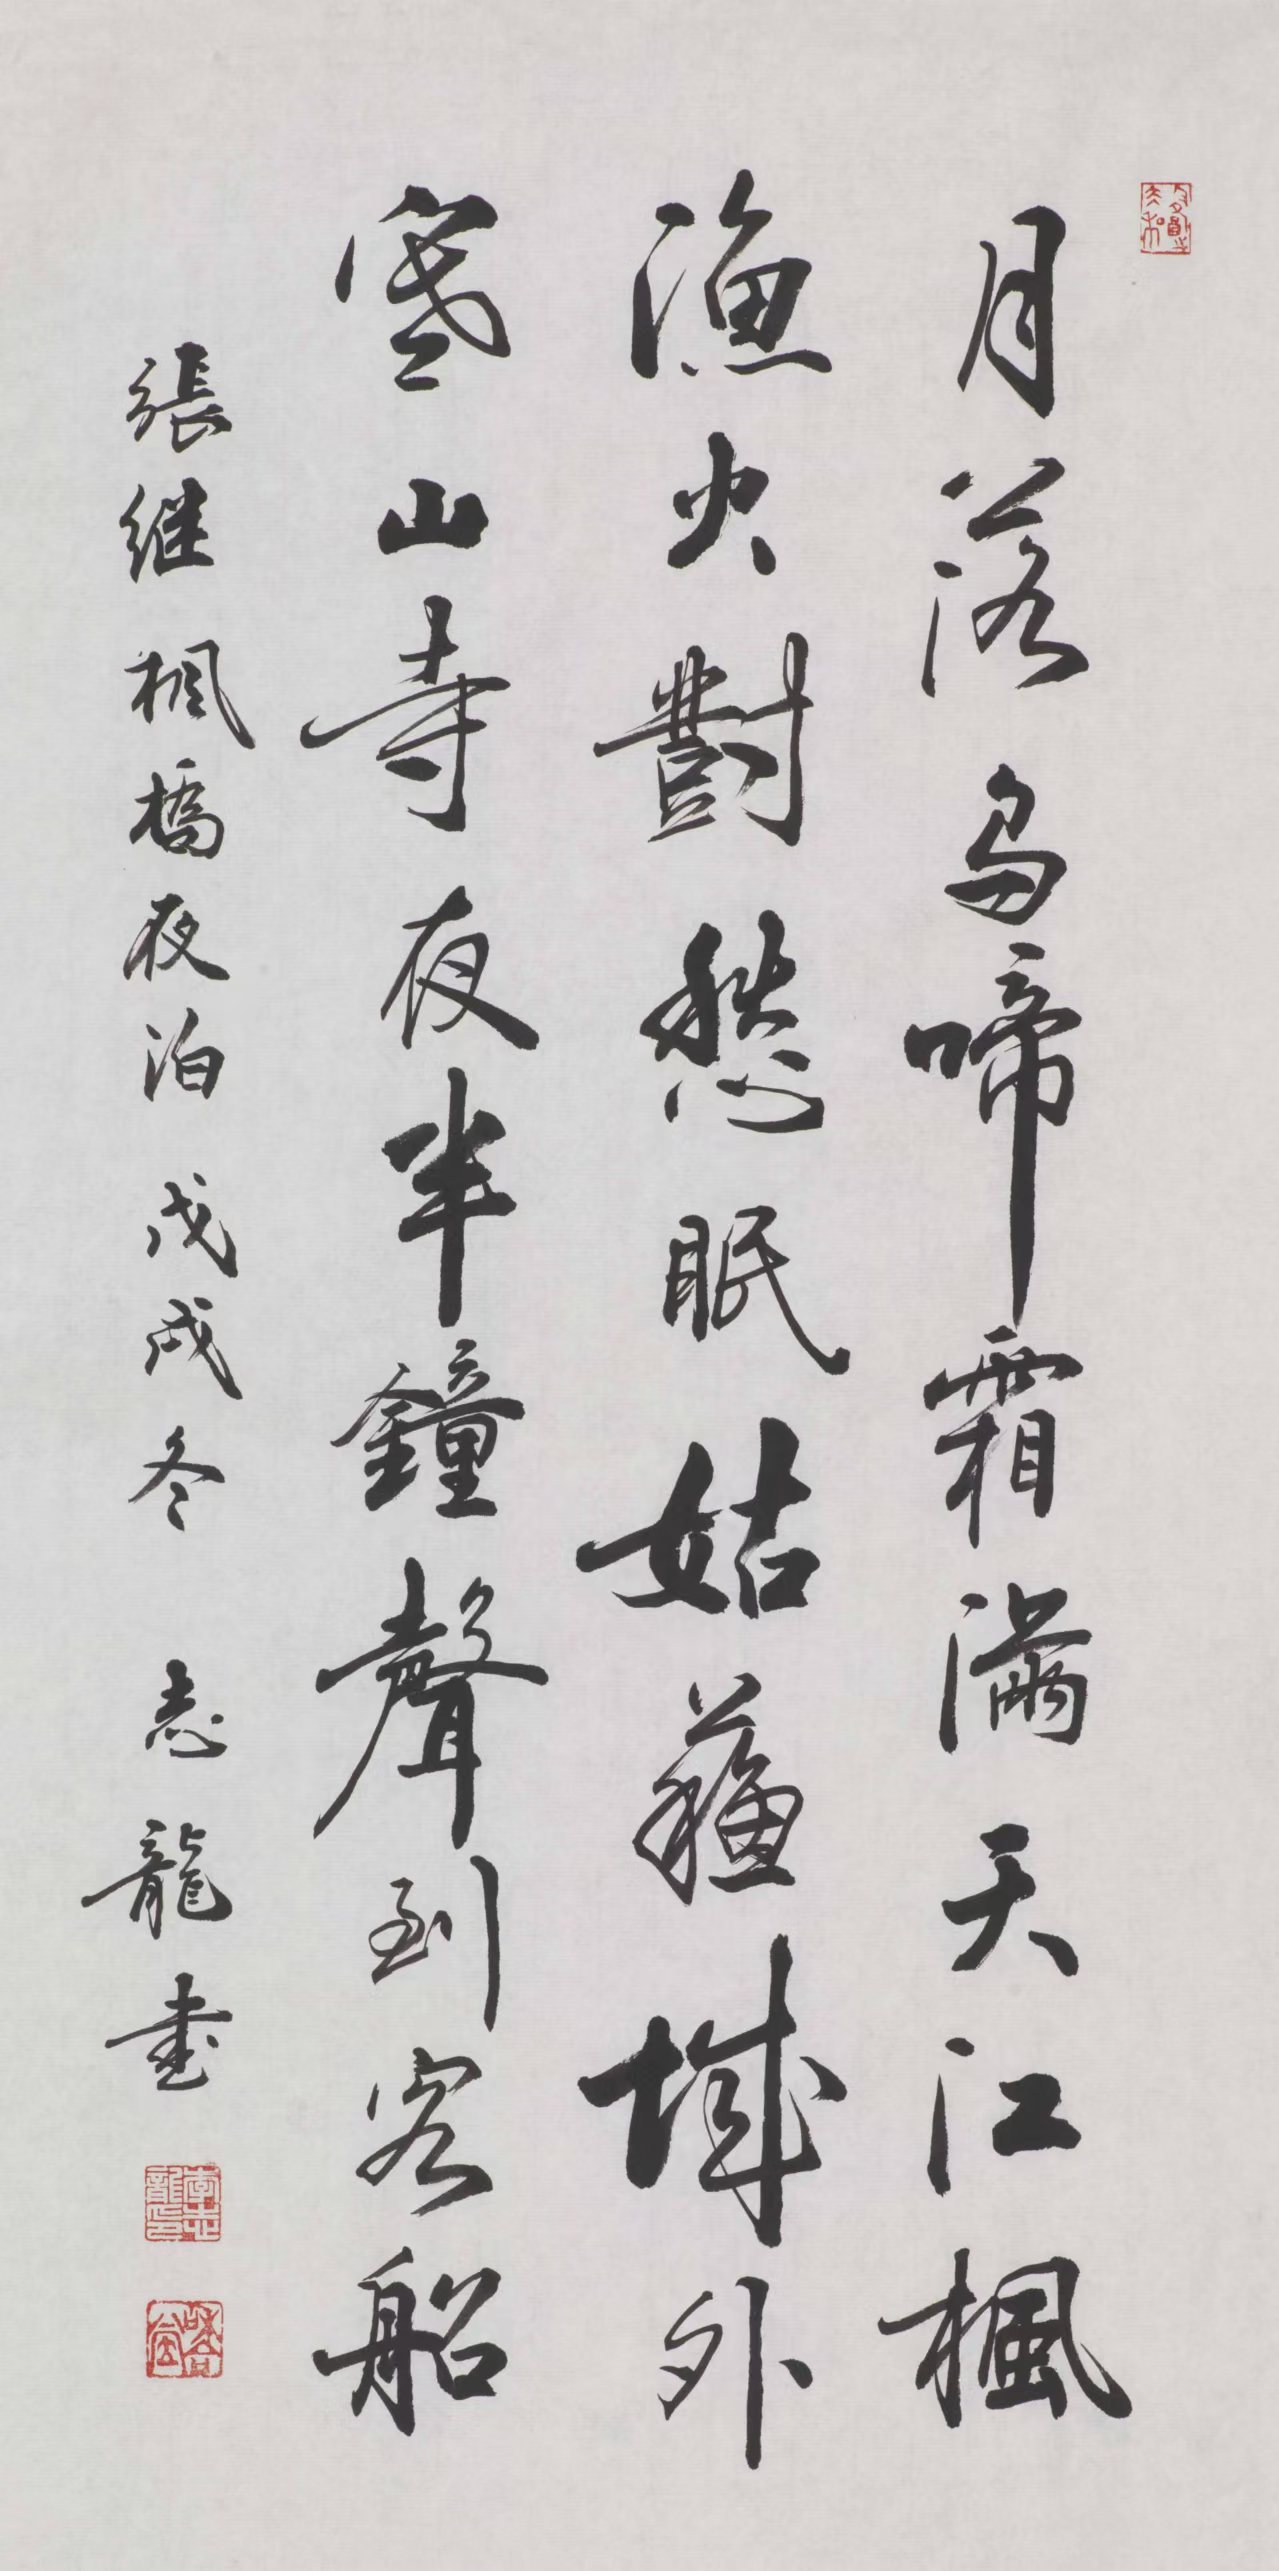 月落烏啼霜滿天江楓
漁火對愁眠姑蘇城外
寒山寺夜半鐘聲到客船
張继楓橋夜泊戊戌冬 志龍書
李志龍印